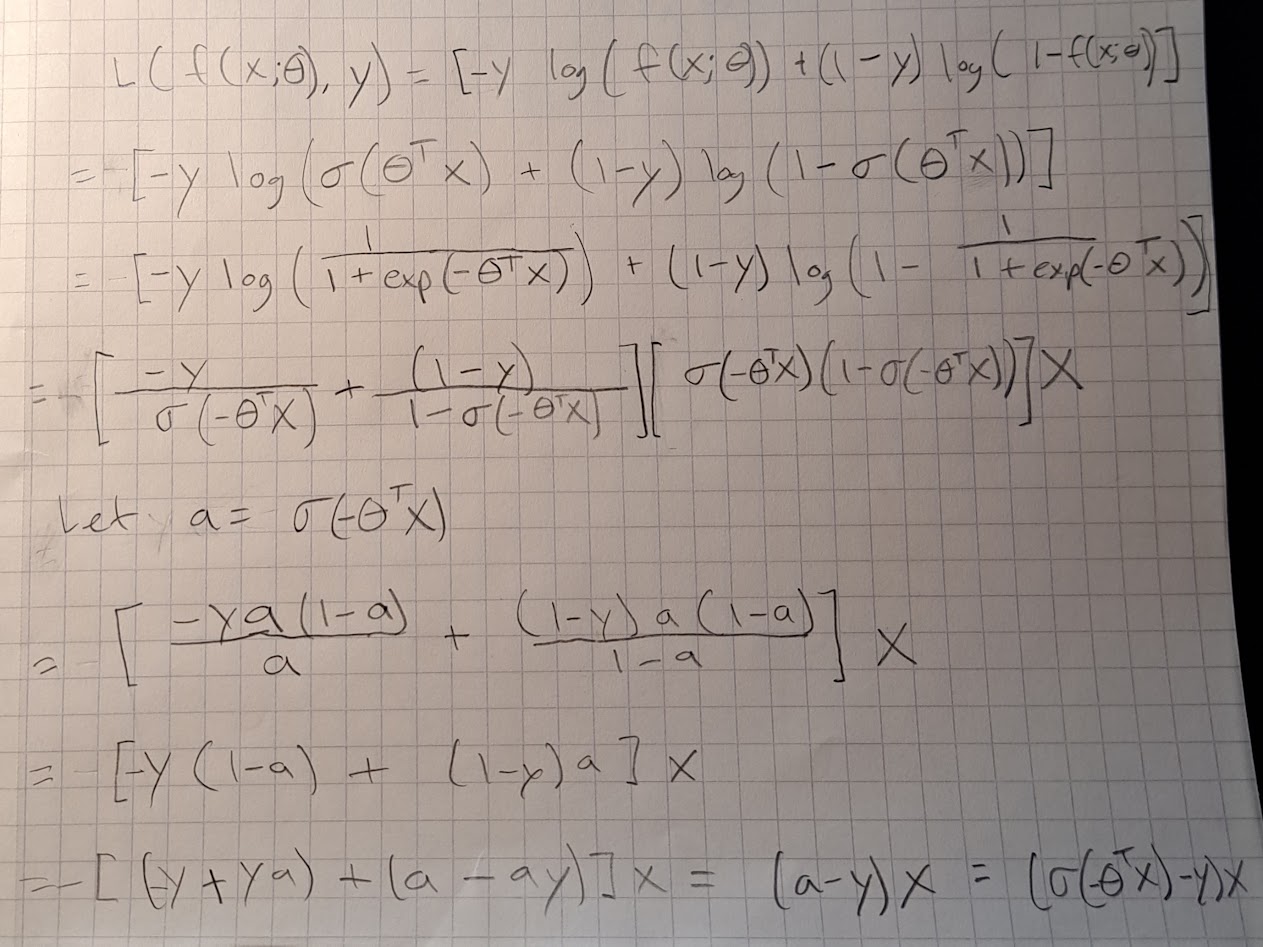 L(f(x;θ), y) = [-y log(f(x;θ)) + (1-y) log(1-f(x;θ)]
= [-y log(σ(θᵀx) + (1-y) log(1-σ(θᵀx))]
= [-y log(1/(1+exp(-θᵀx))) + (1-y) log(1 - 1/(1+exp(-θᵀx)))]
= [-y/σ(-θᵀx) + (1-y)/(1-σ(-θᵀx)][σ(-θᵀx)(1-σ(-θᵀx))]x
Let a = σ(-θᵀx)
= [-ya(1-a)/a + (1-y)a(1-a)/(1-a)] x
= [-y(1-a) + (1-y)a] x
= -[(-y+ya) + (a-ay)]x = (a-y)x = (σ(-θᵀx)-y)x